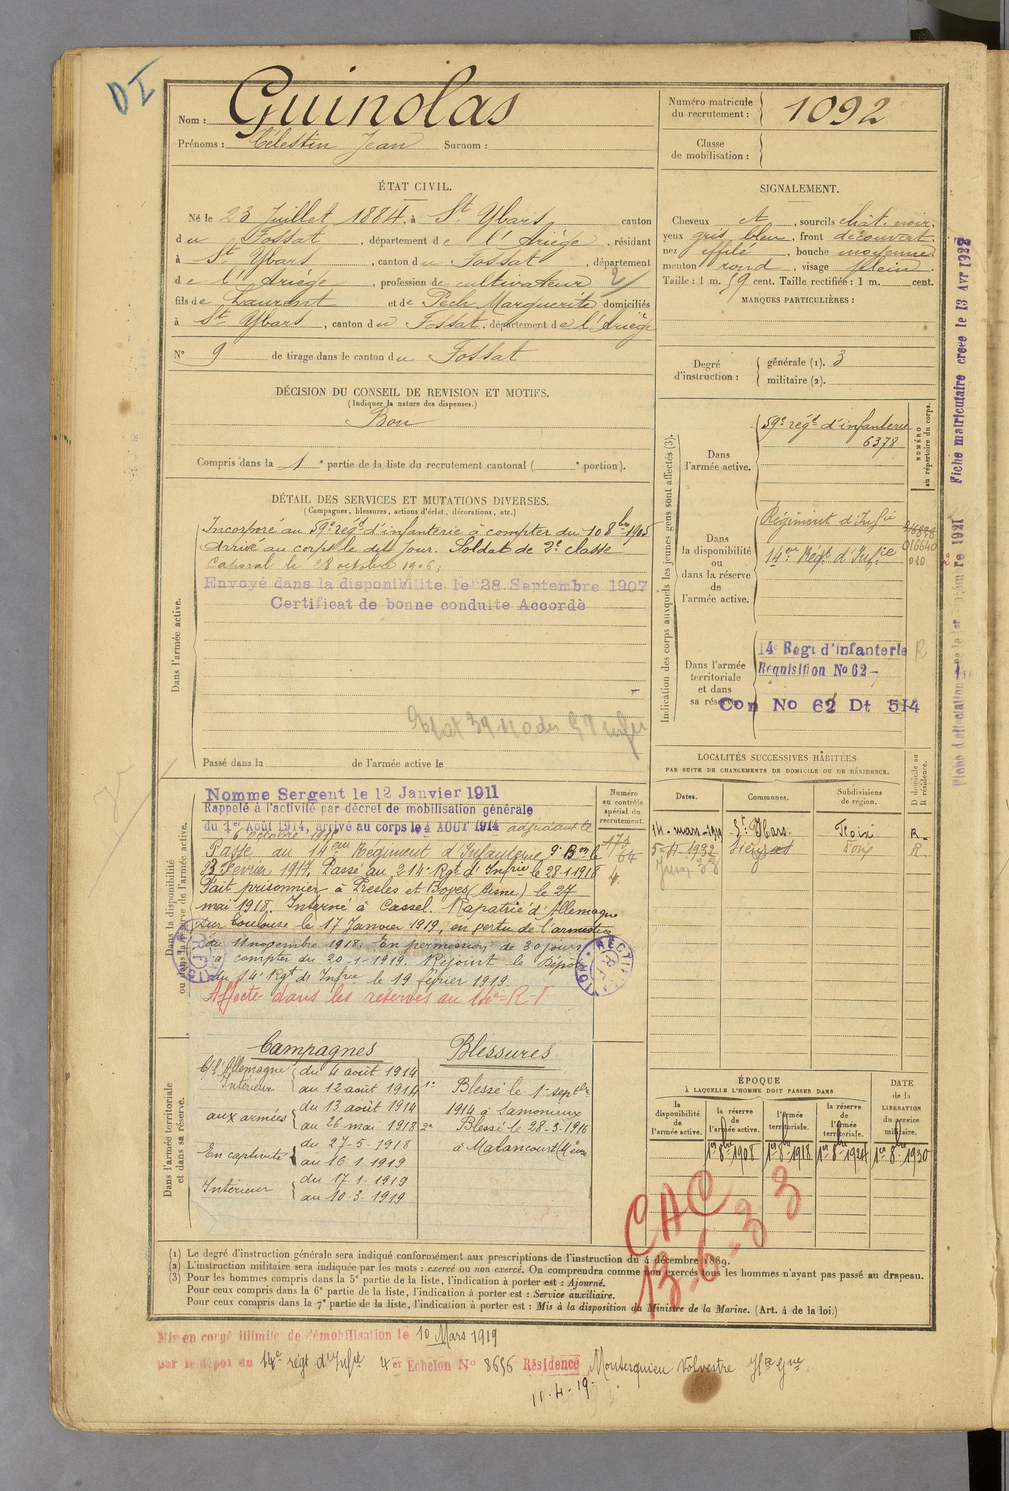 DI
Nom : Guinolas
Prénoms : Célestin Jean Surnom :
Numéro matricule du recrutement : 1092
Classe de mobilisation :
ÉTAT CIVIL.
Né le 23 Juillet 1884, à St Ybars, canton
du Fossat, département de l'Ariège, résidant
à St Ybars, canton du Fossat, département
de l'Ariège, profession de cultivateur
fils de Laurent et de Pech Marguerite domiciliés
à St Ybars, canton du Fossat, département de l'Ariège
N° 9 de tirage dans le canton du Fossat
SIGNALEMENT.
Cheveux ct, sourcils chât. noir,
yeux gris bleu, front découvert,
nez effilé, bouche moyenne,
menton rond, visage plein.
Taille : 1 m. 59 cent. Taille rectifiée : 1 m. cent.
MARQUES PARTICULIÈRES :
Degré d'instruction : générale (1). 3
militaire (2).
DÉCISION DU CONSEIL DE REVISION ET MOTIFS.
(Indiquer la nature des dispenses.)
Bon
Compris dans la 1e partie de la liste du recrutement cantonal ( e portion).
DÉTAIL DES SERVICES ET MUTATIONS DIVERSES.
(Campagnes, blessures, actions d'éclat, décorations, etc.)
Dans l'armée active.
Incorporé au 59e régt d'infanterie à compter du 10 8bre 1905
Arrivé au corps le dit Jour. Soldat de 2e classe
Caporal le 28 octobre 1906;
Envoyé dans la disponibilite le 28 Septembre 1907
Certificat de bonne conduite Accordé
Passé dans la de l'armée active le
Indication des corps auxquels les jeunes gens sont affectés (3).
NUMÉRO au répertoire du corps.
Dans l'armée active.
59e régt d'infanterie
6378
Dans la disponibilité ou dans la réserve de l'armée active.
Régiment d'Infie
14e Régt d'Infie
016640
Dans l'armée territoriale et dans sa réserve.
14e Regt d'infanterie
Requisition No 62 -
Con No 62 Dt 514
Fiche matriculaire creee le 13 Avr 1922
LOCALITÉS SUCCESSIVES HABITÉES
PAR SUITE DE CHANGEMENTS DE DOMICILE OU DE RÉSIDENCE.
Dates. Communes. Subdivisions de région. D domicile ou R résidence.
14-mars-1919 St Ybars Foix R-
5-4-1932 Sieuras Foix R-
Dans la disponibilité ou dans la réserve de l'armée active.
Numéro au contrôle spécial du recrutement.
Nomme Sergent le 12 Janvier 1911
Rappelé à l'activité par décret de mobilisation générale
du 1er Août 1914, arrivé au corps le 4 AOUT 1914 adjudant le
6 octobre 1915
Passé au 14eme Régiment d'Infanterie, 9e Bon le
13 Février 1917, Passé au 214e Rgt d'Infie le 28-1-1918
Fait prisonnier à Presles et Boves (Aisne) le 27
mai 1918. Interné à Cassel. Rapatrié d'Allemagne
sur Toulouse le 17 Janvier 1919, en vertu de l'armistice
du 11 novembre 1918. En permission de 30 jours
à compter du 20-1-1919. Rejoint le Dépôt
du 14e Rgt de Infie le 19 février 1919.
Affecté dans les réserves au 14e R.I.
Dans l'armée territoriale et dans sa réserve.
Campagnes
C/ l'Allemagne
Intérieur du 4 août 1914
au 12 août 1914
aux armées du 13 août 1914
au 26 mai 1918
En captivité du 27-5-1918
au 16-1-1919
Intérieur du 17-1-1919
au 10-3-1919
Blessures
1° Blessé le 1er septbre
1914 à Samonieux
2° Blessé le 28-3-1916
à Malancourt Meuse
ÉPOQUE
À LAQUELLE L'HOMME DOIT PASSER DANS
la disponibilité de l'armée active. la réserve de l'armée active. l'armée territoriale. la réserve de l'armée territoriale.
DATE de la LIBÉRATION du service militaire.
1er 8bre 1908 1er 8bre 1918 1er 8bre 1924 1er 8bre 1930
CAC
13.6.33
(1) Le degré d'instruction générale sera indiqué conformément aux prescriptions de l'instruction du 4 décembre 1889.
(2) L'instruction militaire sera indiquée par les mots : exercé ou non exercé. On comprendra comme non exercés tous les hommes n'ayant pas passé au drapeau.
(3) Pour les hommes compris dans la 5e partie de la liste, l'indication à porter est : Ajourné.
Pour ceux compris dans la 6e partie de la liste, l'indication à porter est : Service auxiliaire.
Pour ceux compris dans la 7e partie de la liste, l'indication à porter est : Mis à la disposition du Ministre de la Marine. (Art. 4 de la loi.)
Mis en congé illimité de démobilisation le 10 Mars 1919
par le dépôt du 14e régt d'Infie 4er Echelon No 8656 Résidence Montesquieu Volvestre Hte Gne
11-4-19-